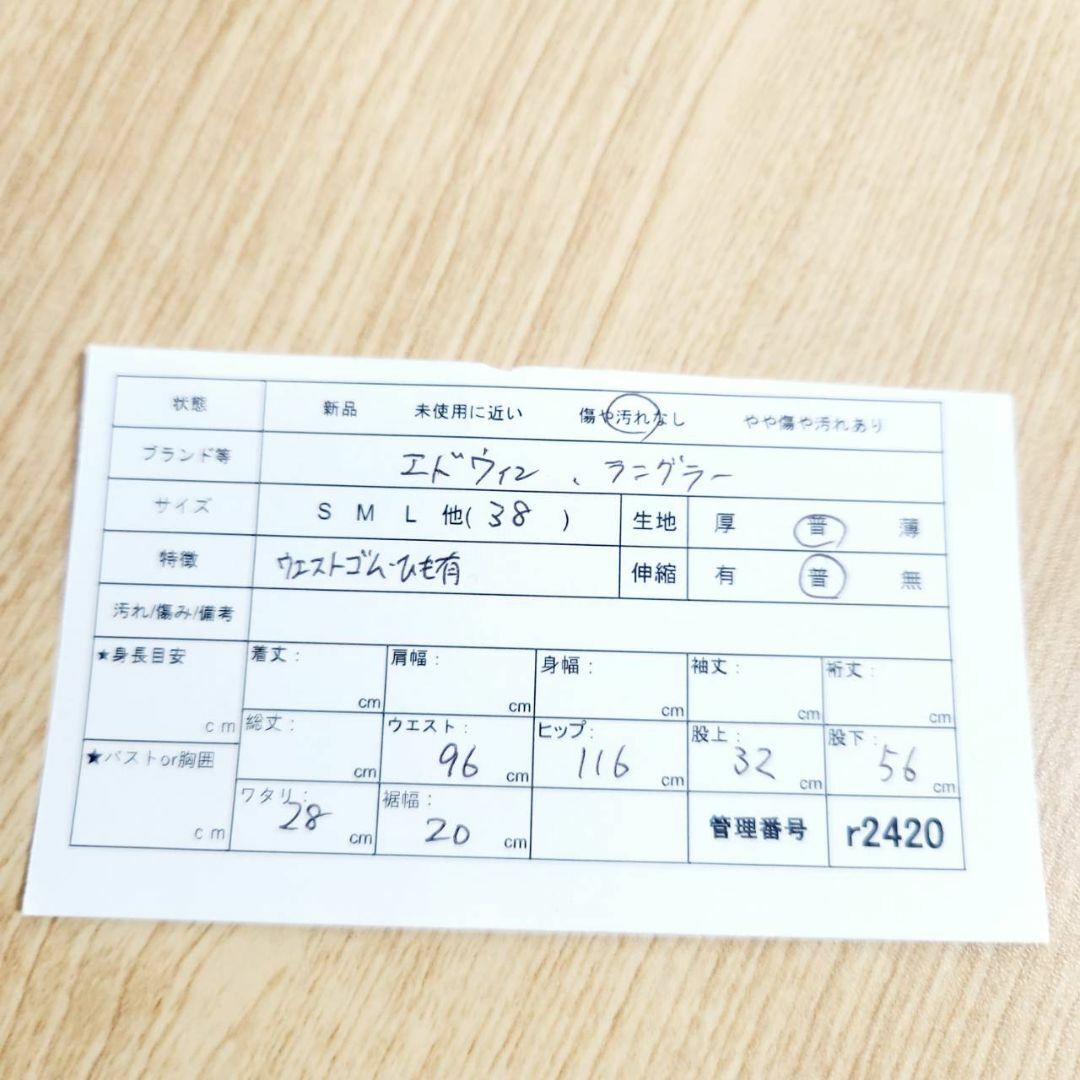 状態 新品 未使用に近い 傷や汚れなし やや傷や汚れあり
ブランド等 エドウィン、ラングラー
サイズ S M L 他(38) 生地 厚 普 薄
特徴 ウエストゴム・ひも有 伸縮 有 普 無
汚れ/傷み/備考
★身長目安 cm 着丈: cm 肩幅: cm 身幅: cm 袖丈: cm 裄丈: cm
総丈: cm ウエスト: 96 cm ヒップ: 116 cm 股上: 32 cm 股下: 56 cm
★バストor胸囲 cm ワタリ: 28 cm 裾幅: 20 cm 管理番号 r2420